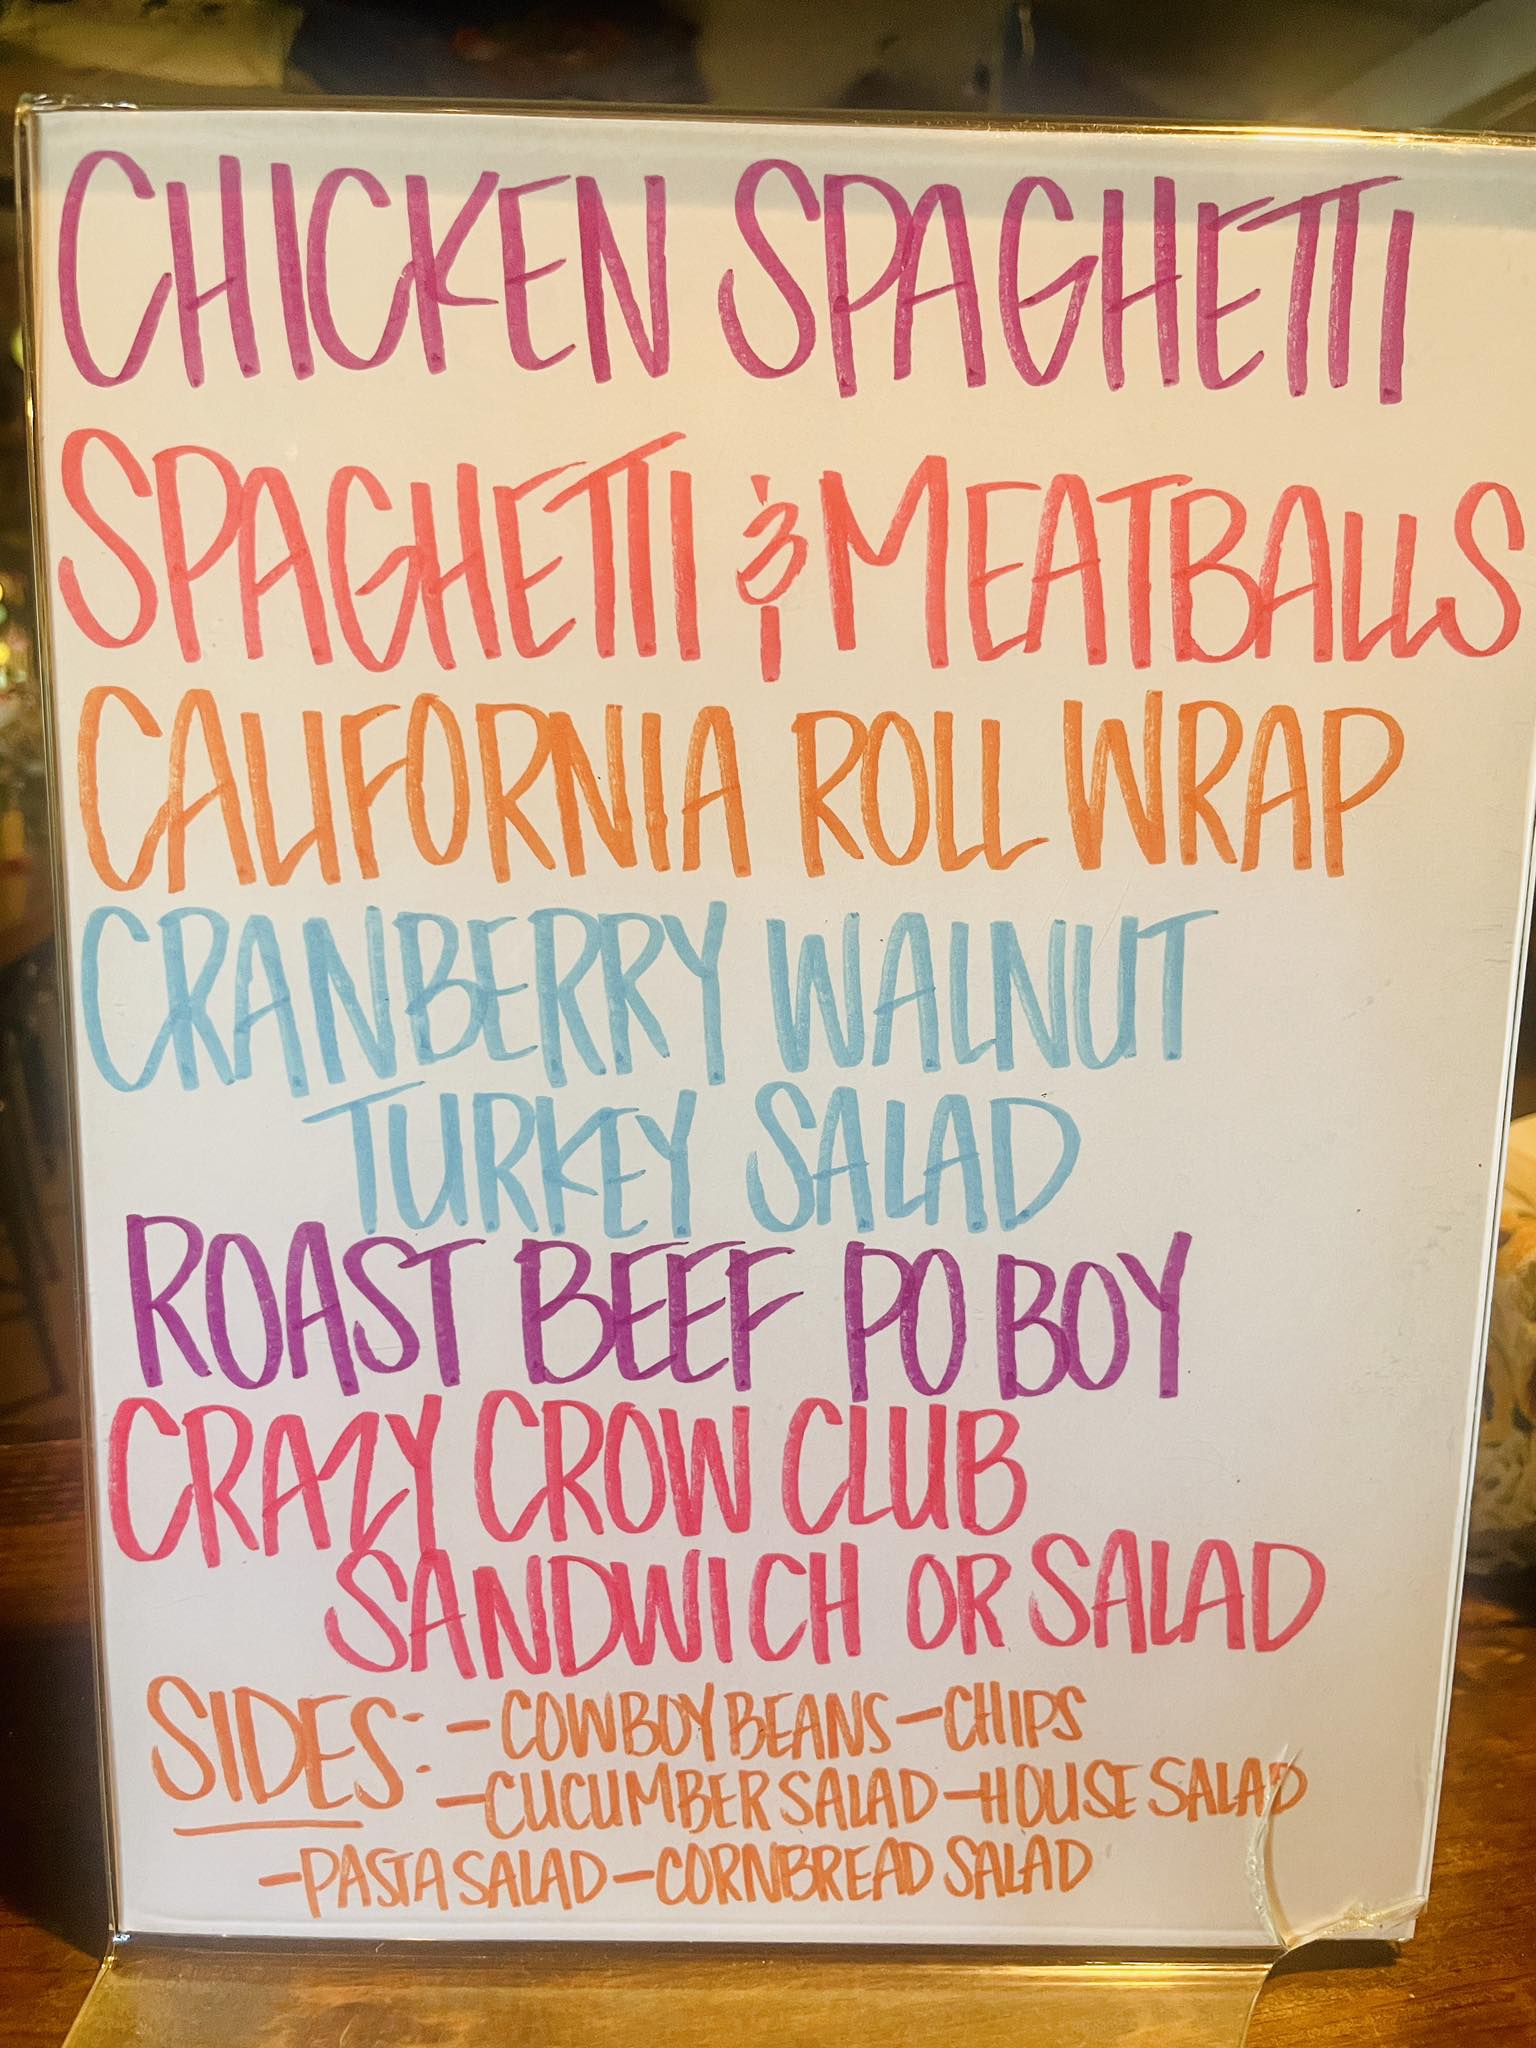 CHICKEN SPAGHETTI
SPAGHETTI & MEATBALLS
CALIFORNIA ROLL WRAP
CRANBERRY WALNUT
TURKEY SALAD
ROAST BEEF PO BOY
CRAZY CROW CLUB
SANDWICH OR SALAD
SIDES: -COWBOY BEANS -CHIPS
-CUCUMBER SALAD -HOUSE SALAD
-PASTA SALAD -CORNBREAD SALAD